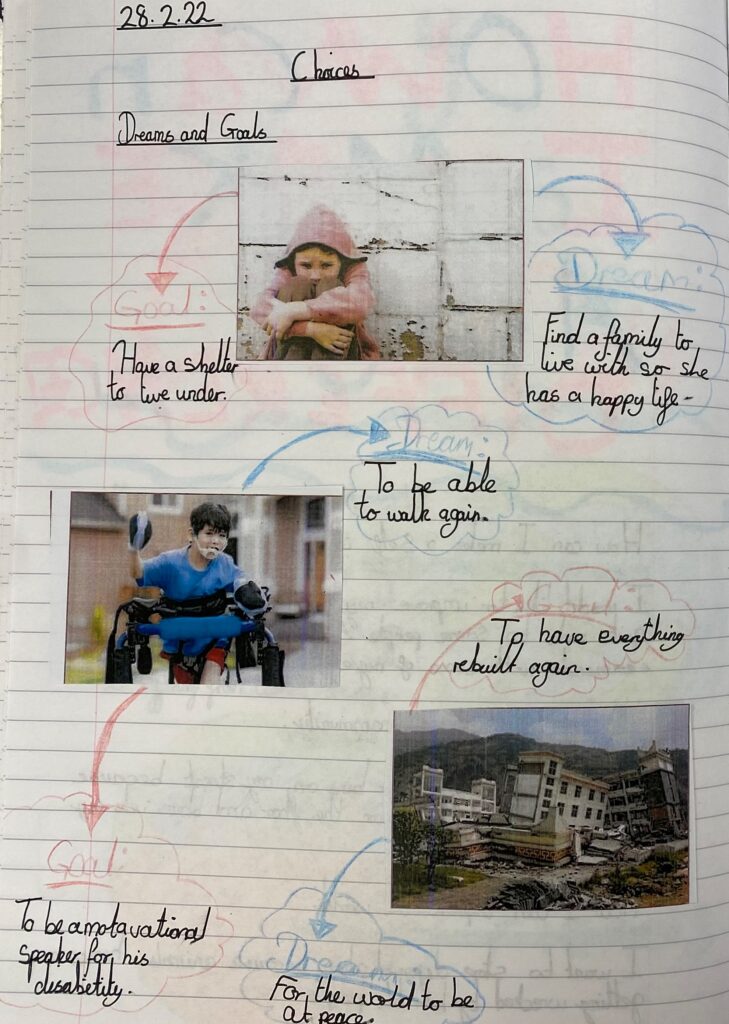 28.2.22
Choices
Dreams and Goals
Goal:
Have a shelter
to live under.
Dream:
Find a family to
live with so she
has a happy life-
Dream:
To be able
to walk again.
Goal:
To have everything
rebuilt again.
Goal:
To be a motavational
speaker for his
disabetity.
Dream:
For the world to be
at peace.